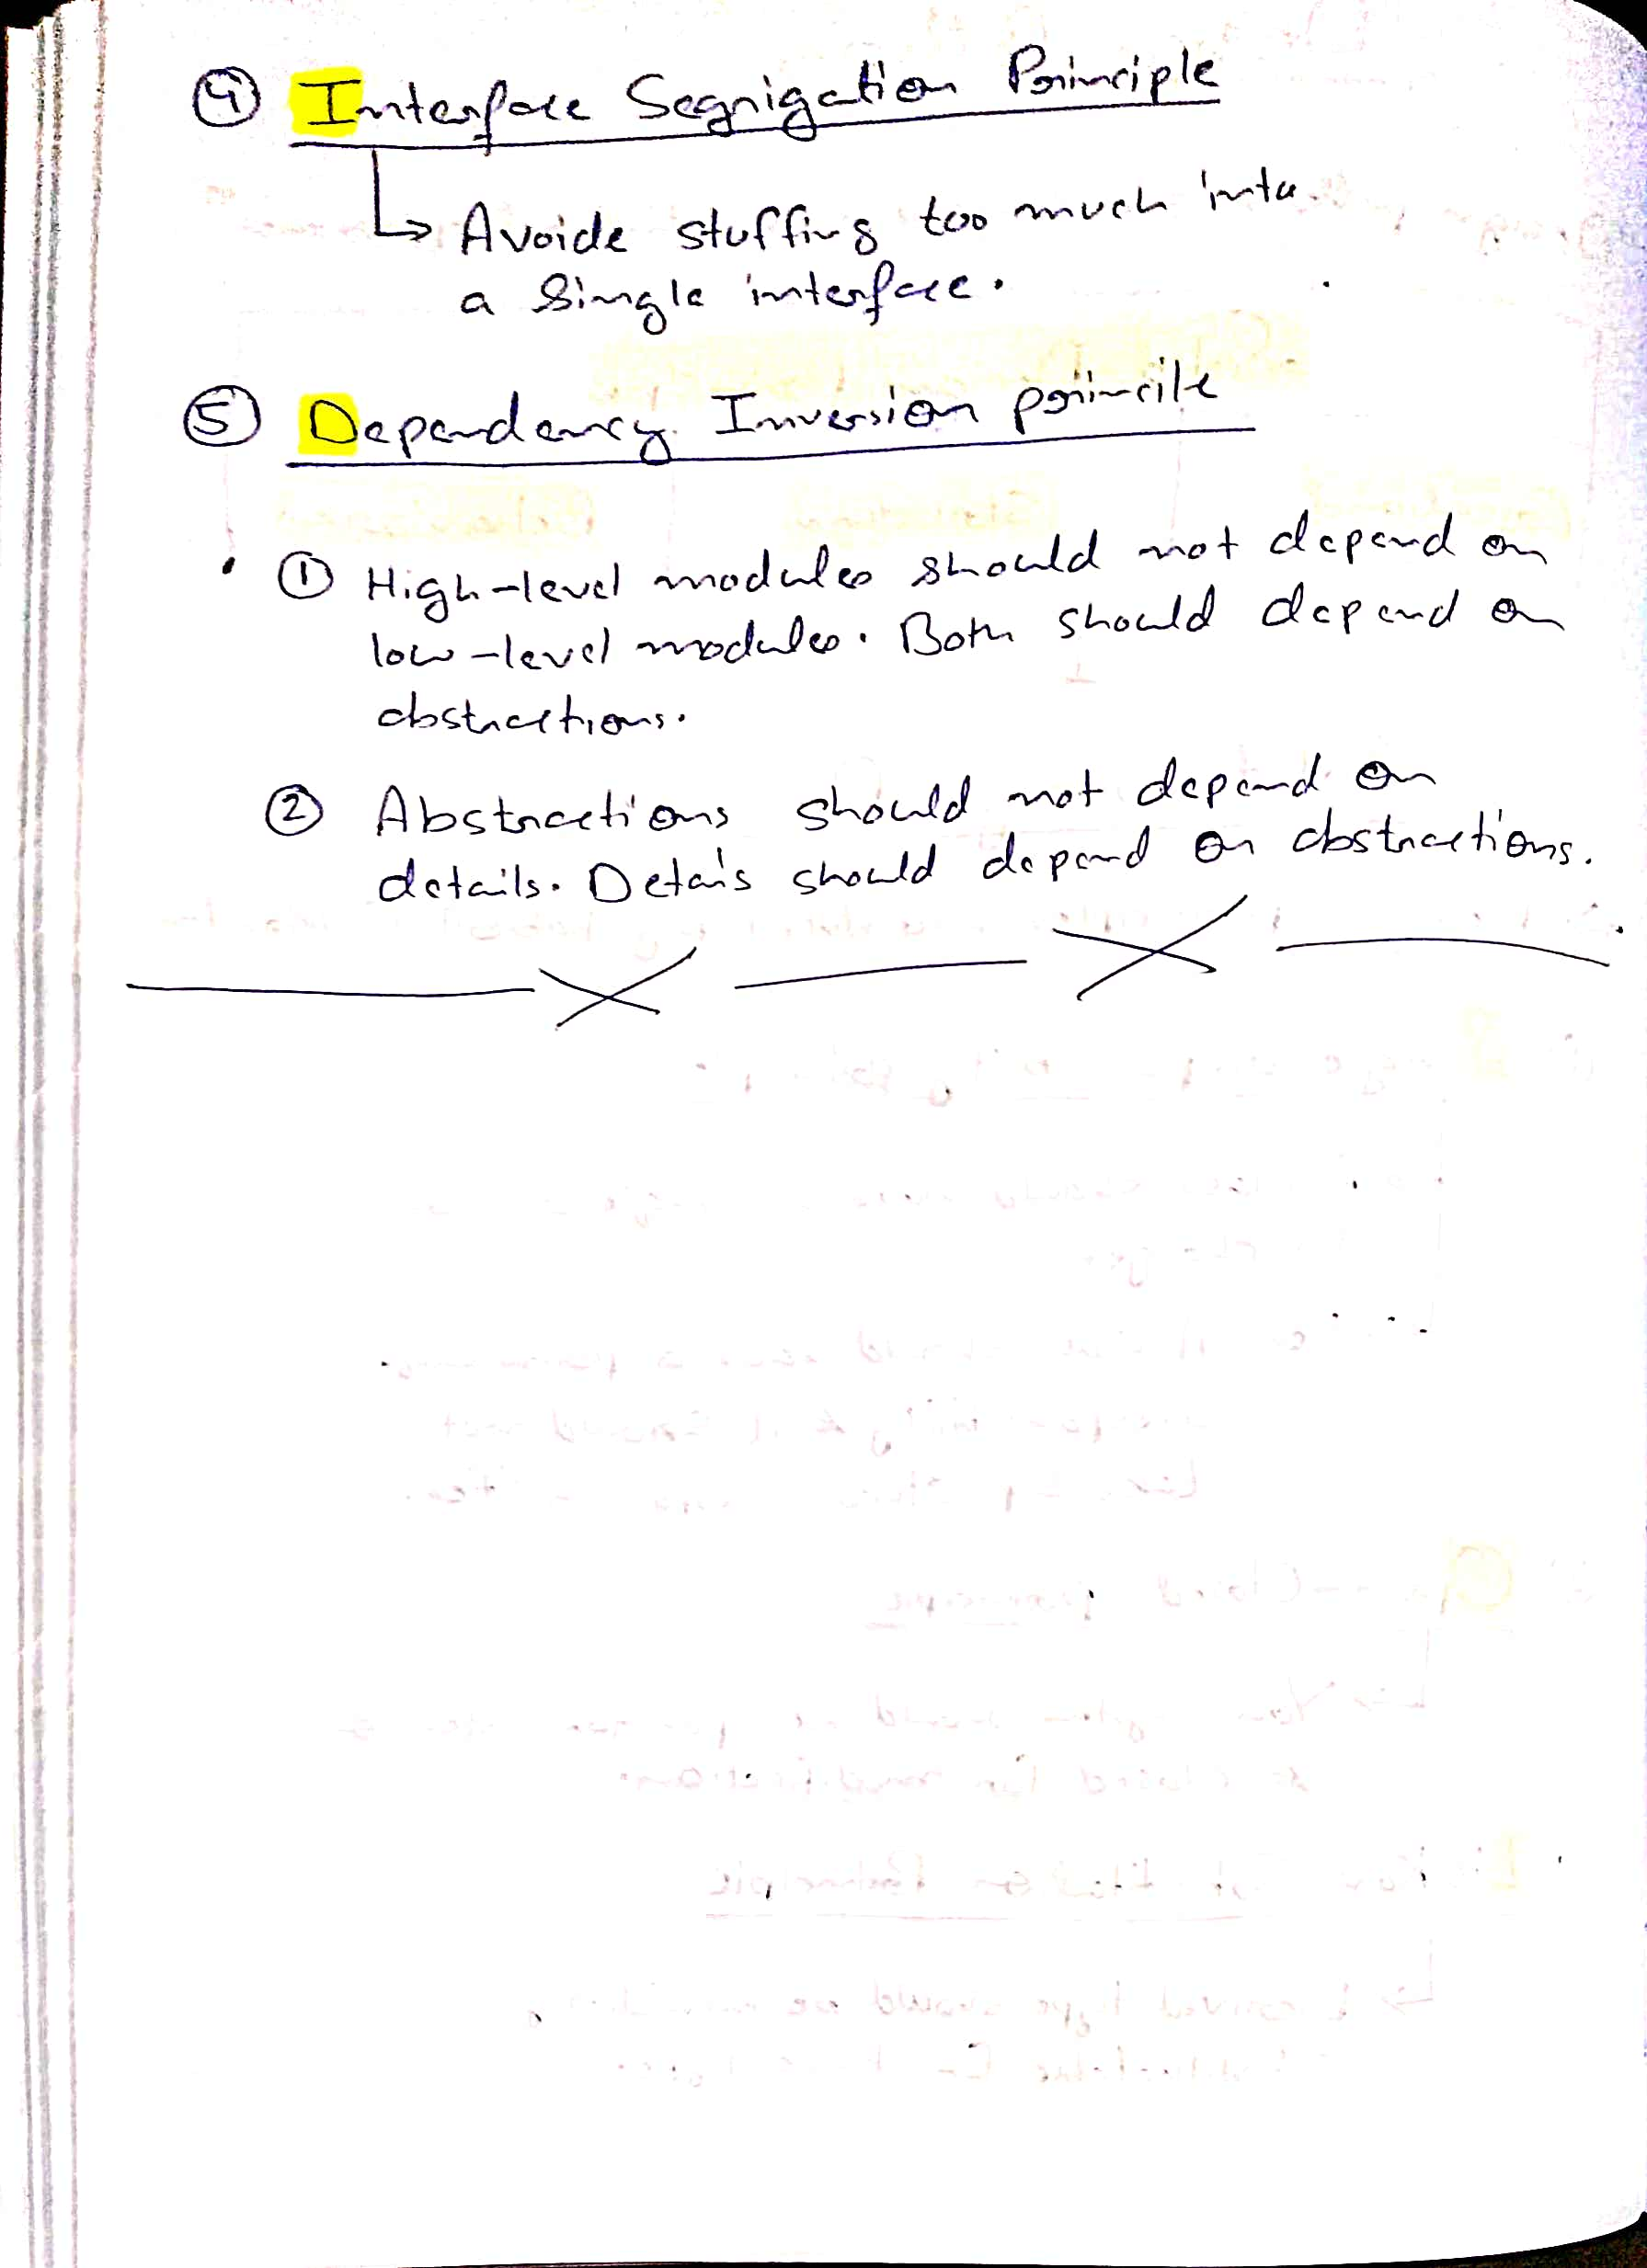 ④ Interface Segrigation Principle
↳ Avoide stuffing too much into
a Single interface.
⑤ Dependency Inversion princile
① High-level modules should not depend on
low-level modules. Both should depend on
abstractions.
② Abstractions should not depend on
details. Detais should depend on abstractions.